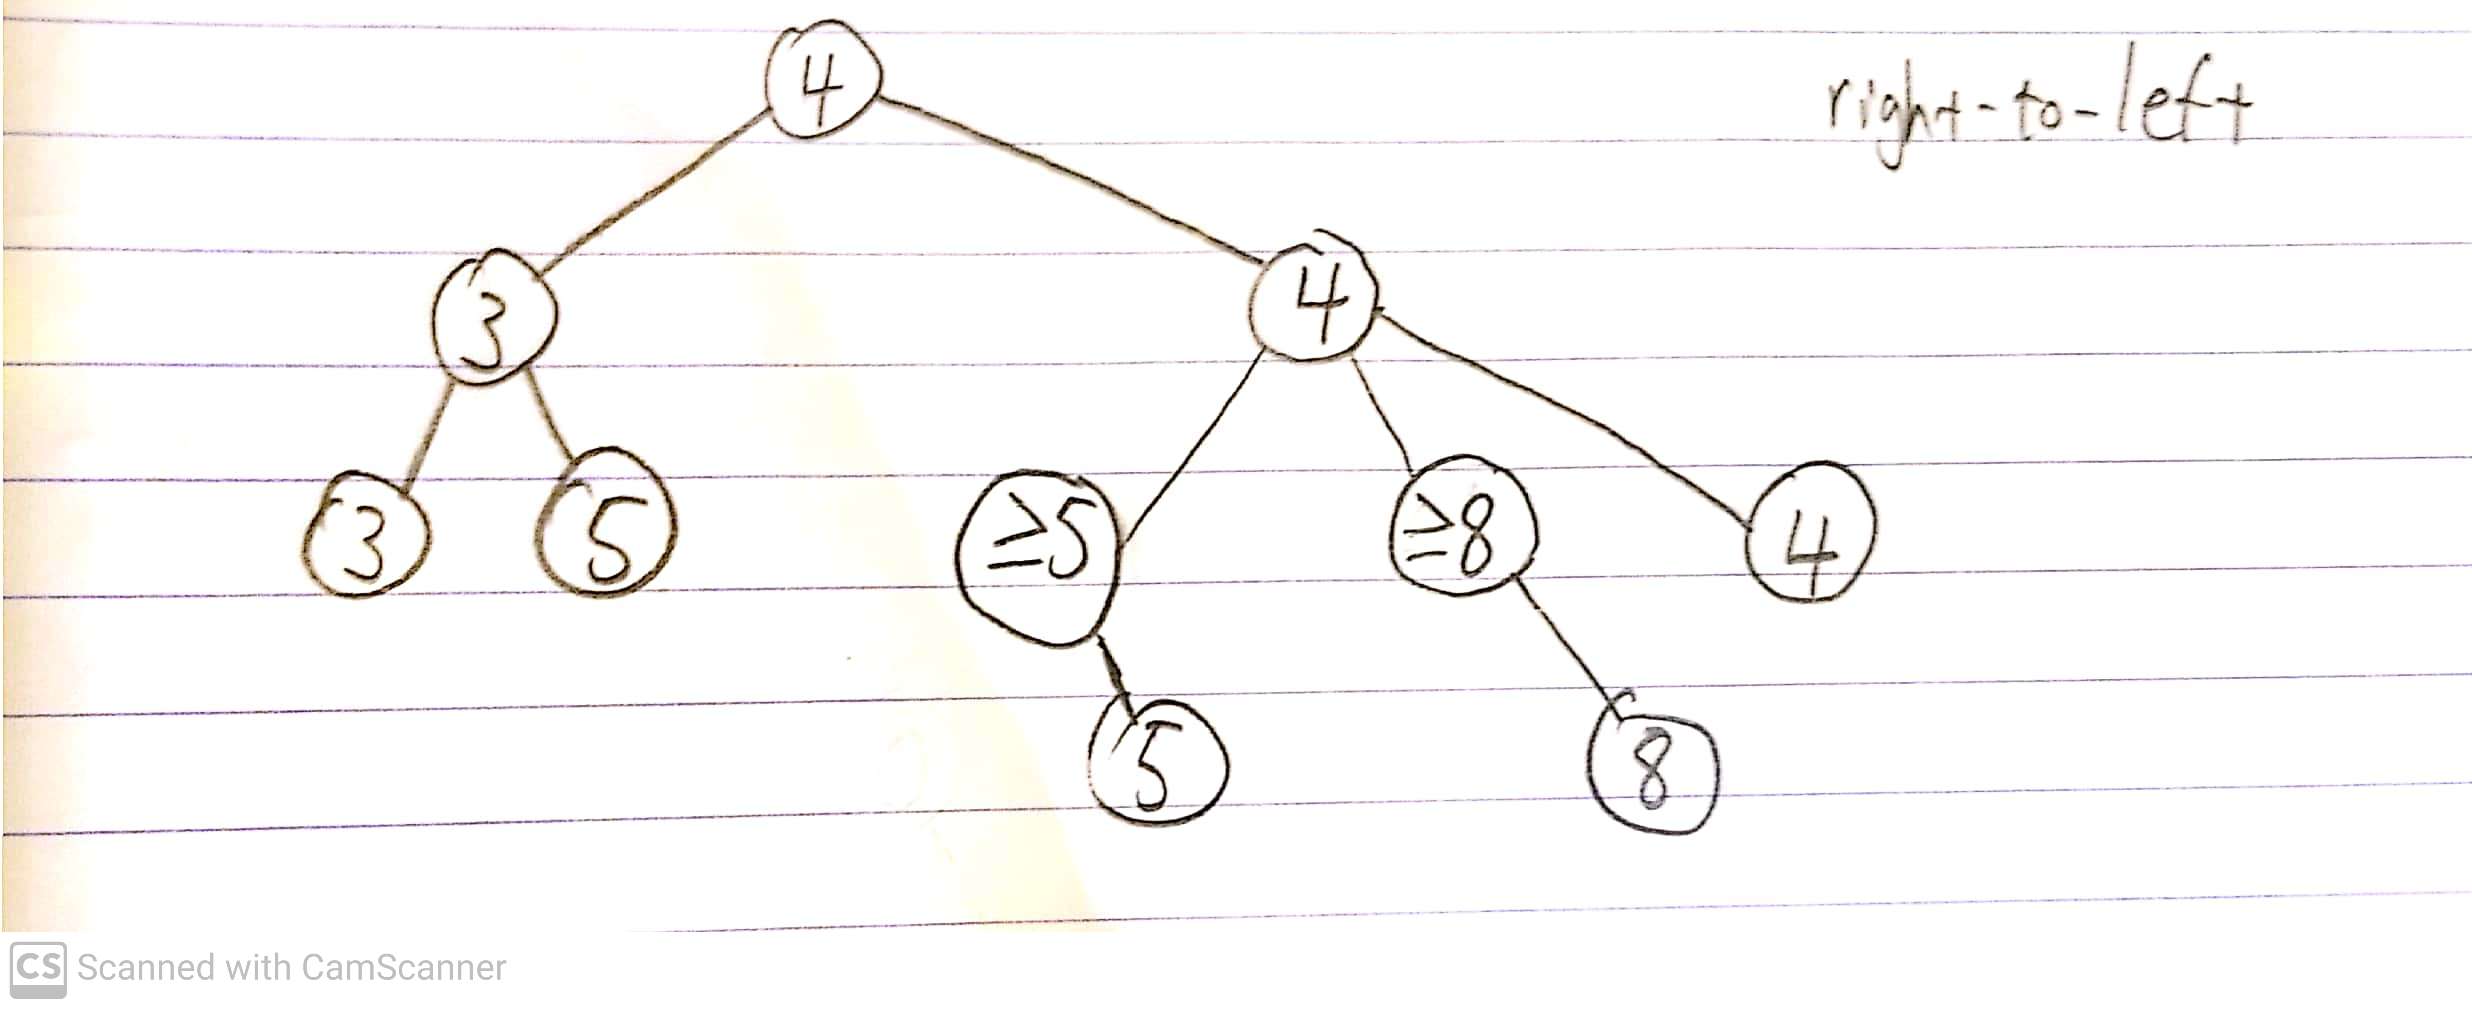 4
right-to-left
3
4
3
5
≥5
≥8
4
5
8
CS Scanned with CamScanner